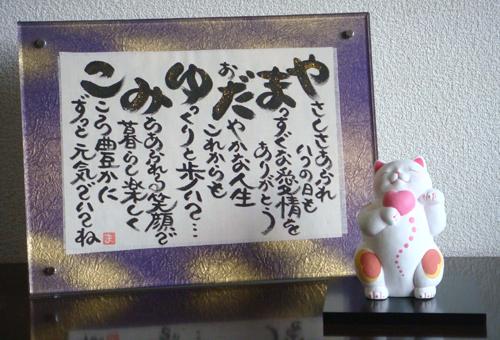 やさしさあふれ
いつの日も
まっすぐな愛情を
ありがとう
おだやかな人生
これからも
ゆっくりと歩いて…
みちあふれる笑顔で
暮らし楽しく
こころ豊かに
ずっと元気でいてね
ま